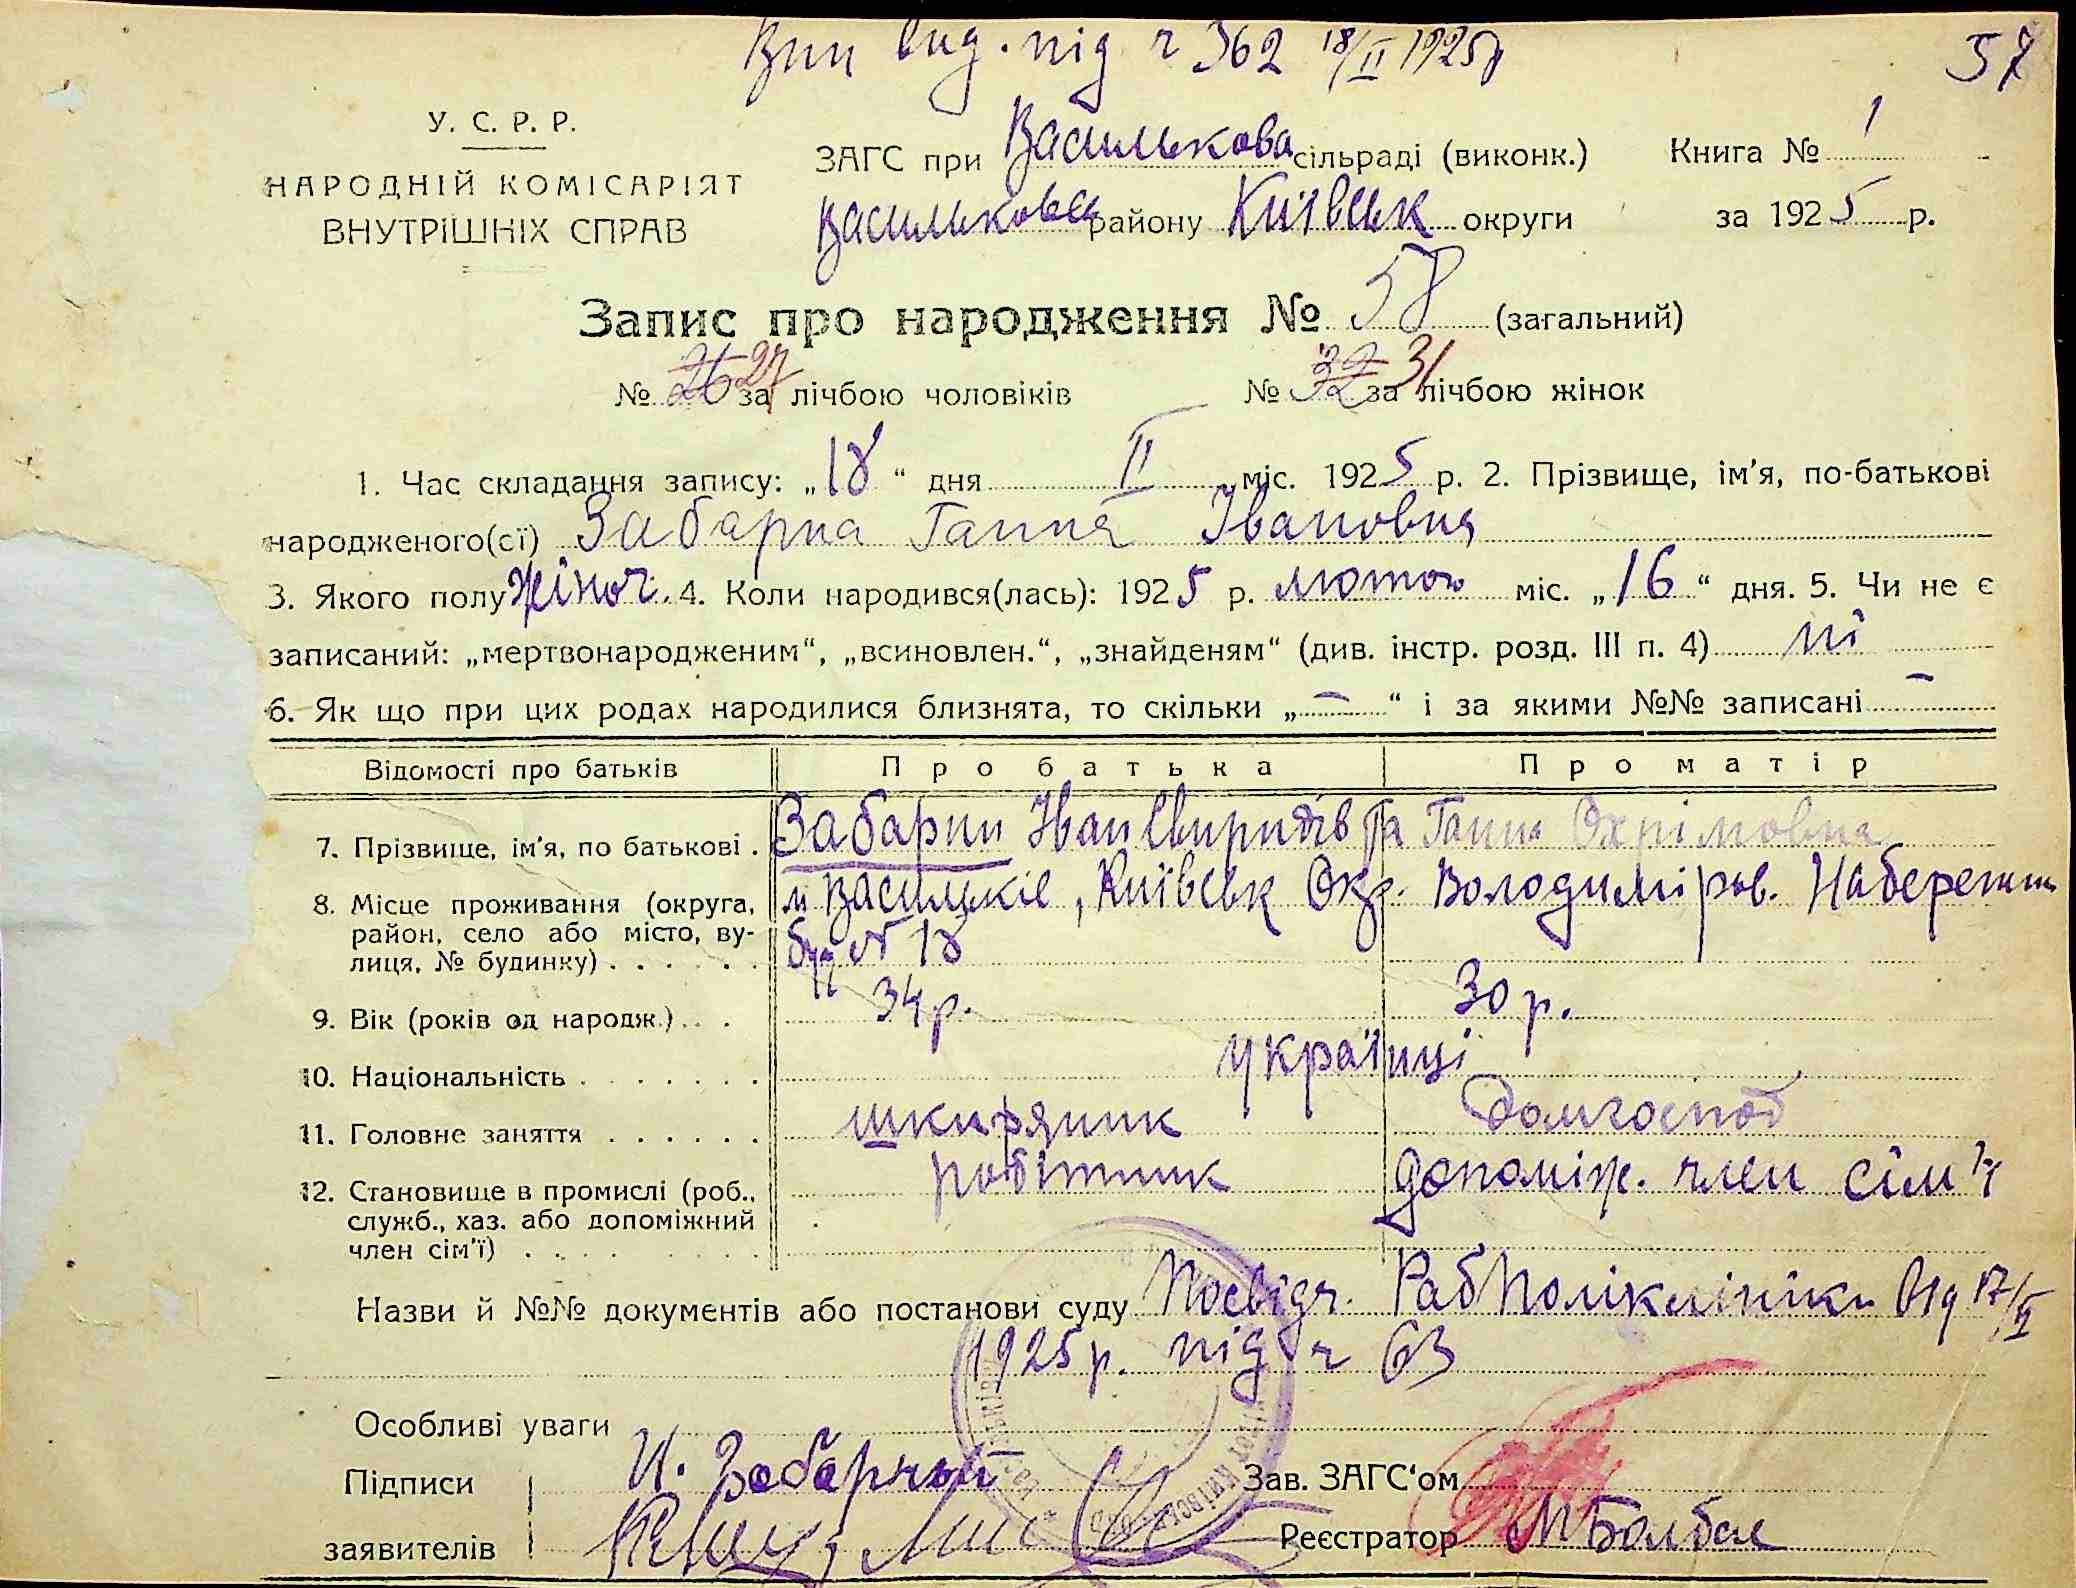 Вип вид. під ч 362 18/II 1925р
57
У. С. Р. Р.
НАРОДНІЙ КОМІСАРІЯТ
ВНУТРІШНІХ СПРАВ
ЗАГС при Василькова сільраді (виконк.) Книга № 1
Васильков району Київськ округи за 1925 р.
Запис про народження № 58 (загальний)
№ 26 27 за лічбою чоловіків № 32 31 за лічбою жінок
1. Час складання запису: „18“ дня II міс. 1925 р. 2. Прізвище, ім'я, по-батькові
народженого(сї) Забарна Ганна Івановна
3. Якого полу жіноч. 4. Коли народився(лась): 1925 р. лютого міс. „16“ дня. 5. Чи не є
записаний: „мертвонародженим“, „всиновлен.“, „знайденям“ (див. інстр. розд. III п. 4) ні
6. Як що при цих родах народилися близнята, то скільки „—“ і за якими №№ записані —
Відомості про батьків Про батька Про матір
7. Прізвище, ім'я, по батькові . Забарни Іван Свиридів та Ганна Охрімовна
8. Місце проживання (округа, м. Васильків, Київськ Окр. Володиміров. Набережн
район, село або місто, ву-
лиця, № будинку) . . . . . . буд № 18
9. Вік (років од народж.) . . . 34 р. 30 р.
10. Національність . . . . . . . українці
11. Головне заняття . . . . . . шкиряник Домгоспод
12. Становище в промислі (роб., робітник допоміж. член сім'ї
служб., хаз. або допоміжний
член сім'ї) . . . .
Назви й №№ документів або постанови суду Посвідч. РабПоліклініки від 17/II
1925 р. під ч 63
Особливі уваги
Підписи И. Забарный Зав. ЗАГС'ом
заявителів Реєстратор МБолбас